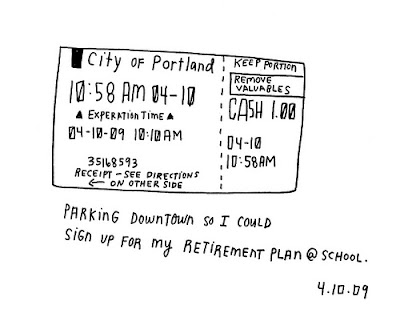 City of Portland
10:58 AM 04-10
▲ EXPERATION TIME ▲
04-10-09 10:10AM
35168593
RECEIPT - SEE DIRECTIONS
← ON OTHER SIDE
KEEP PORTION
REMOVE
VALUABLES
CASH 1.00
04-10
10:58AM
PARKING DOWNTOWN SO I COULD
SIGN UP FOR MY RETIREMENT PLAN @ SCHOOL.
4.10.09